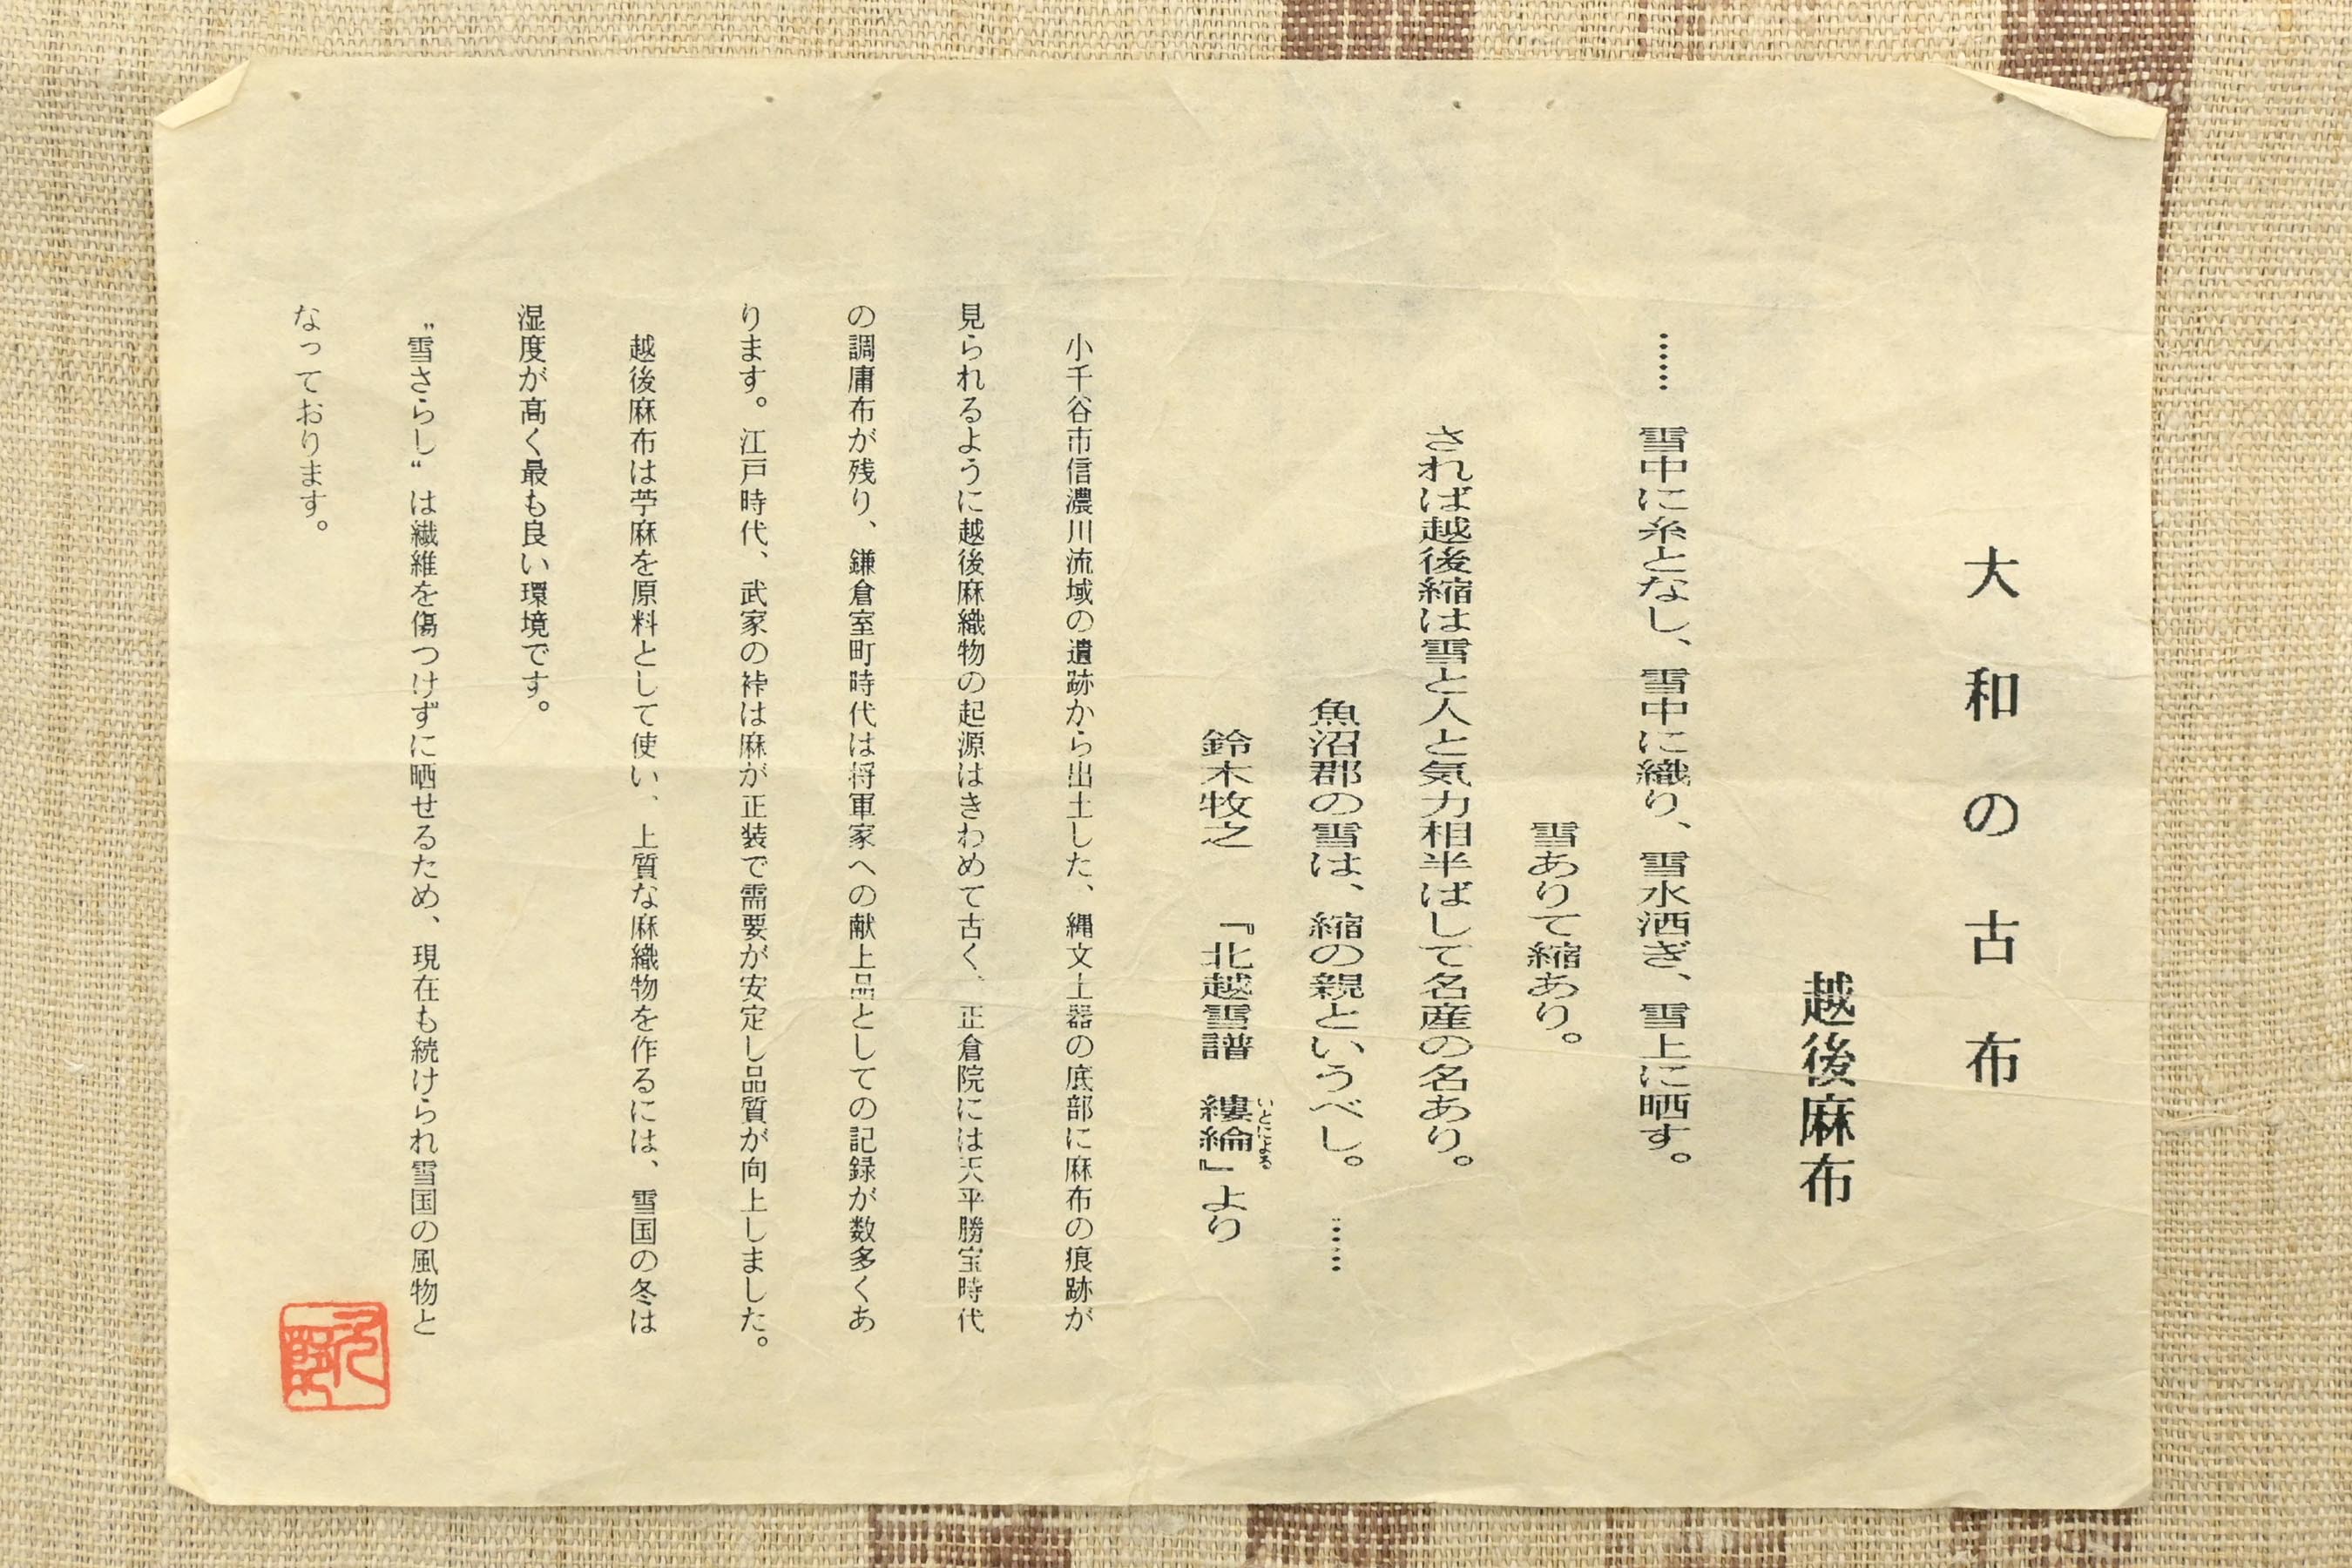 大和の古布
越後麻布
…… 雪中に糸となし、雪中に織り、雪水洒ぎ、雪上に晒す。
雪ありて縮あり。
されば越後縮は雪と人と気力相半ばして名産の名あり。
魚沼郡の雪は、縮の親というべし。……
鈴木牧之 『北越雪譜 縷綸』より
いとによる
小千谷市信濃川流域の遺跡から出土した、縄文土器の底部に麻布の痕跡が
見られるように越後麻織物の起源はきわめて古く、正倉院には天平勝宝時代
の調庸布が残り、鎌倉室町時代は将軍家への献上品としての記録が数多くあ
ります。江戸時代、武家の裃は麻が正装で需要が安定し品質が向上しました。
越後麻布は苧麻を原料として使い、上質な麻織物を作るには、雪国の冬は
湿度が高く最も良い環境です。
〝雪さらし〟は繊維を傷つけずに晒せるため、現在も続けられ雪国の風物と
なっております。